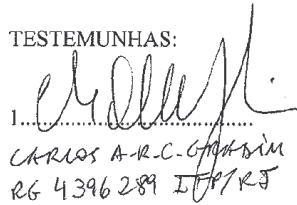 TESTEMUNHAS:
1..........................................
CARLOS A.R.C. GRADIM
RG 4396289 IFP/RJ